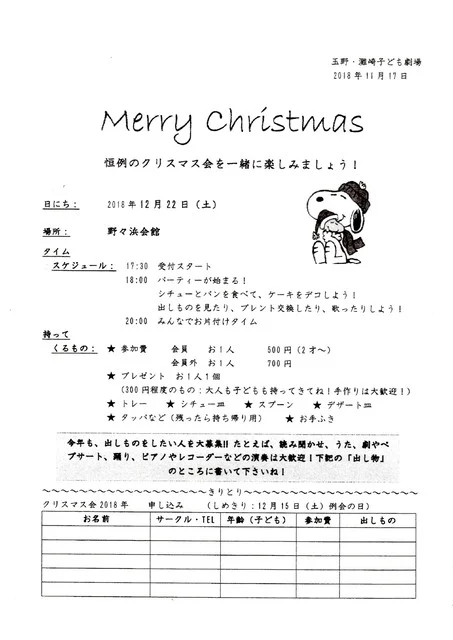 玉野・灘崎子ども劇場
2018年11月17日
Merry Christmas
恒例のクリスマス会を一緒に楽しみましょう！
日にち： 2018年12月22日（土）
場所： 野々浜会館
タイム
スケジュール： 17:30 受付スタート
18:00 パーティーが始まる！
シチューとパンを食べて、ケーキをデコしよう！
出しものを見たり、プレゼント交換したり、歌ったりしよう！
20:00 みんなでお片付けタイム
持って
くるもの： ★ 参加費 会員 お1人 500円（2才～）
会員外 お1人 700円
★ プレゼント お1人1個
（300円程度のもの：大人も子どもも持ってきてね！手作りは大歓迎！）
★ トレー ★ シチュー皿 ★ スプーン ★ デザート皿
★ タッパなど（残ったら持ち帰り用） ★ お手ふき
今年も、出しものをしたい人を大募集!! たとえば、読み聞かせ、うた、劇やペ
プサート、踊り、ピアノやレコーダーなどの演奏は大歓迎！下記の「出し物」
のところに書いて下さいね！
～～～～～～～～～～～～～～～～きりとり～～～～～～～～～～～～～～～～
クリスマス会2018年 申し込み （しめきり：12月15日（土）例会の日）
お名前 サークル・TEL 年齢（子ども） 参加費 出しもの